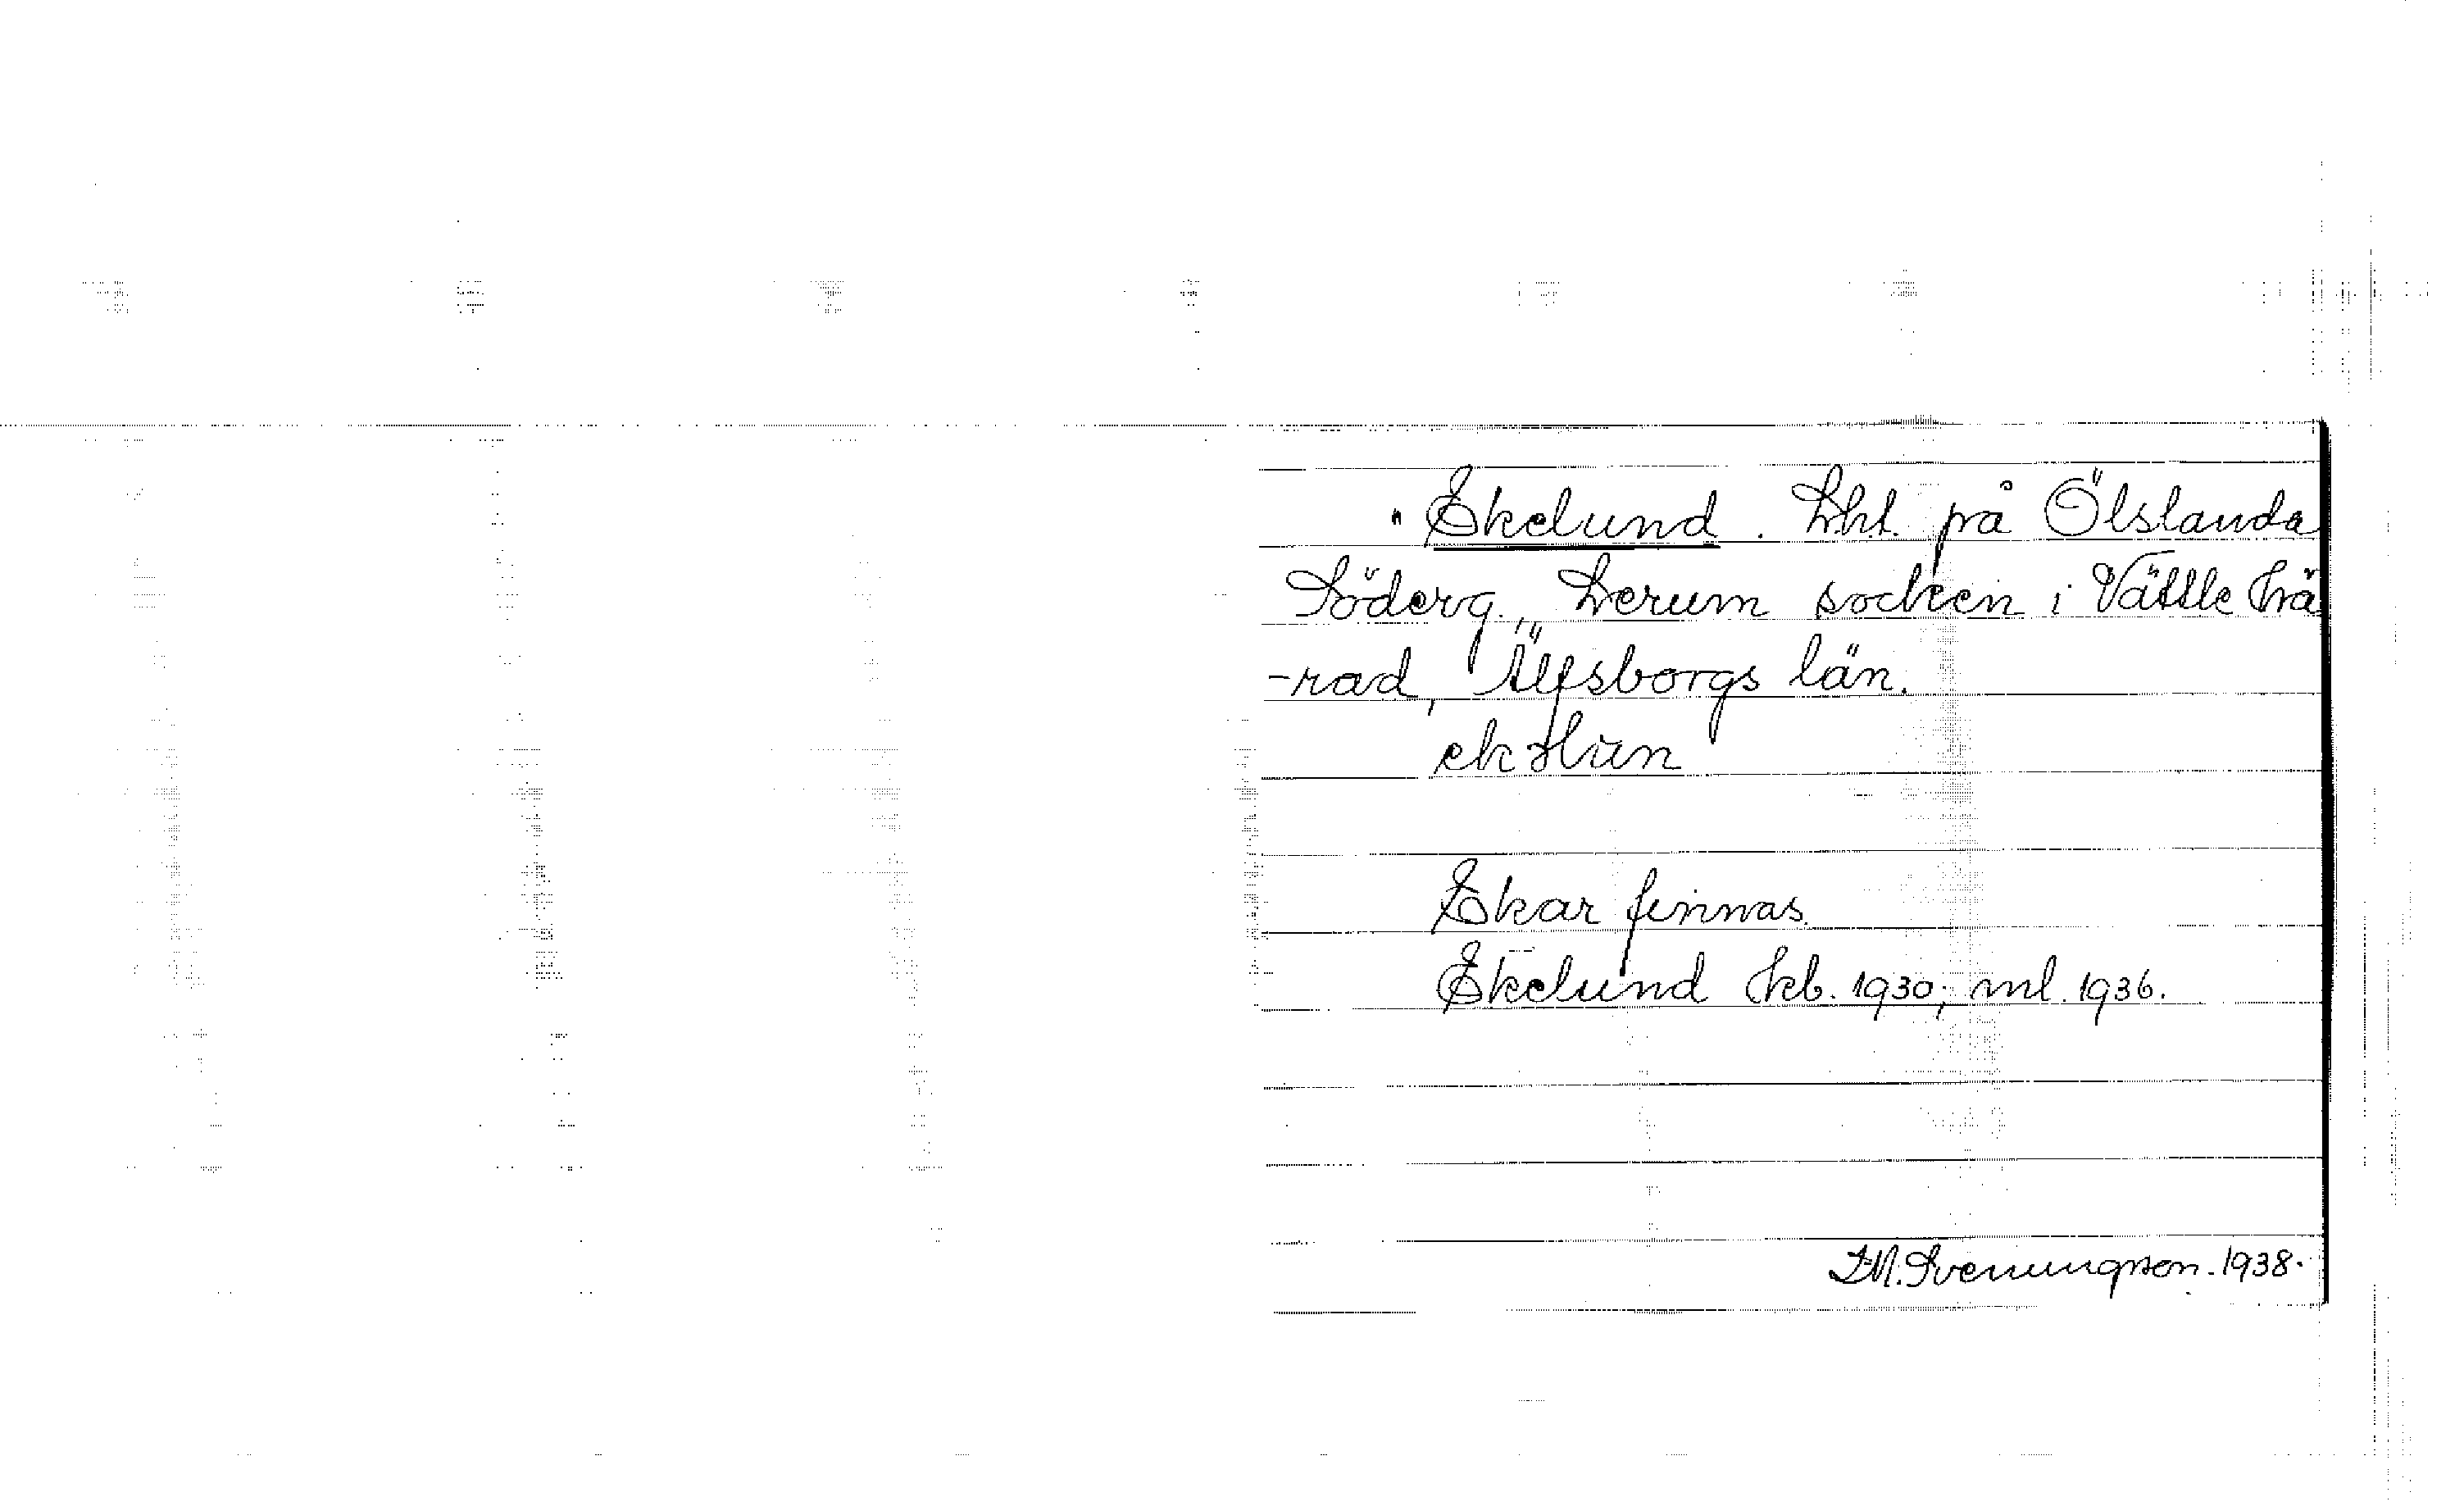 " Ekelund. Lht. på Ölslanda
Söderg., Lerum socken i Vättle hä
-rad, Älfsborgs län.
Ekar finnas.
Ekelund kb. 1930; ml. 1936.
I.M. Svenungson. 1938.